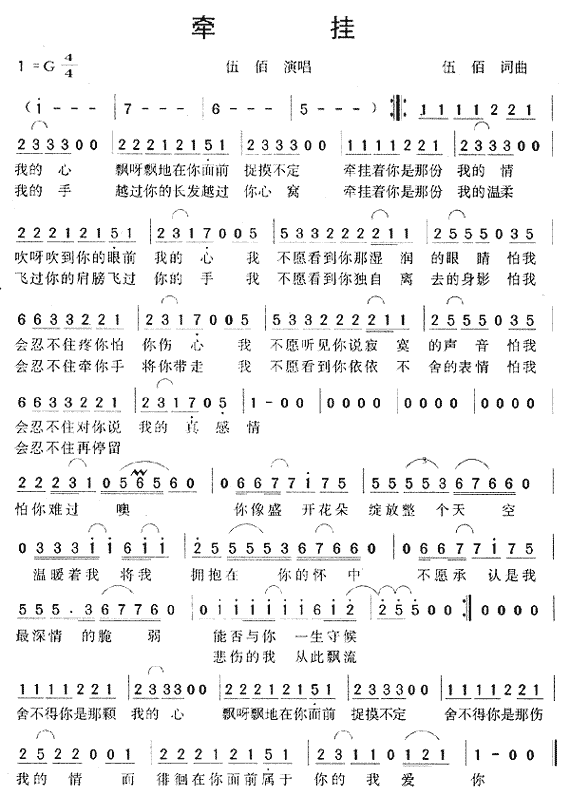 牵 挂
1=G 4/4 伍 佰 演唱 伍 佰 词曲
( i - - - | 7 - - - | 6 - - - | 5 - - - ) ‖: 1 1 1 1 2 2 1 |
2 3 3 3 3 0 0 | 2 2 2 1 2 1 5 1 | 2 3 3 3 3 0 0 | 1 1 1 1 2 2 1 | 2 3 3 3 3 0 0 |
我的 心 飘呀飘地在你面前 捉摸不定 牵挂着你是那份 我的 情
我的 手 越过你的长发越过 你心 窝 牵挂着你是那份 我的温柔
2 2 2 1 2 1 5 1 | 2 3 1 7 0 0 5 | 5 3 3 2 2 2 2 1 1 | 2 5 5 5 5 0 3 5 |
吹呀吹到你的眼前 我的 心 我 不愿看到你那湿 润 的眼 睛 怕我
飞过你的肩膀飞过 你的 手 我 不愿看到你独自 离 去的身影 怕我
6 6 3 3 2 2 1 | 2 3 1 7 0 0 5 | 5 3 3 2 2 2 2 1 1 | 2 5 5 5 5 0 3 5 |
会忍不住疼你怕 你伤 心 我 不愿听见你说寂 寞 的声 音 怕我
会忍不住牵你手 将你带走 我 不愿看到你依依 不 舍的表情 怕我
6 6 3 3 2 2 1 | 2 3 1 7 0 5 | 1 - 0 0 | 0 0 0 0 | 0 0 0 0 | 0 0 0 0 |
会忍不住对你说 我的 真 感 情
会忍不住再停留
2 2 2 3 1 0 5 6 5 6 0 | 0 6 6 7 7 i 7 5 | 5 5 5 5 3 6 7 6 6 0 |
怕你难过 噢 你像盛 开花朵 绽放整 个天 空
0 3 3 3 i i 6 i i | 2 5 5 5 5 3 6 7 6 6 0 | 0 6 6 7 7 i 7 5 |
温暖着我 将我 拥抱在 你的怀 中 不愿承 认是我
5 5 5 . 3 6 7 7 6 0 | 0 i i i i i i 6 i 2 | 2 5 5 0 0 :‖ 0 0 0 0 |
最深情 的脆 弱 能否与你 一生守候
悲伤的我 从此飘流
1 1 1 1 2 2 1 | 2 3 3 3 3 0 0 | 2 2 2 1 2 1 5 1 | 2 3 3 3 3 0 0 | 1 1 1 1 2 2 1 |
舍不得你是那颗 我的 心 飘呀飘地在你面前 捉摸不定 舍不得你是那伤
2 5 2 2 0 0 1 | 2 2 2 1 2 1 2 1 | 2 3 1 0 1 2 1 | 1 - 0 0 ‖
我的 情 而 徘徊在你面前属于 你的 我 爱 你